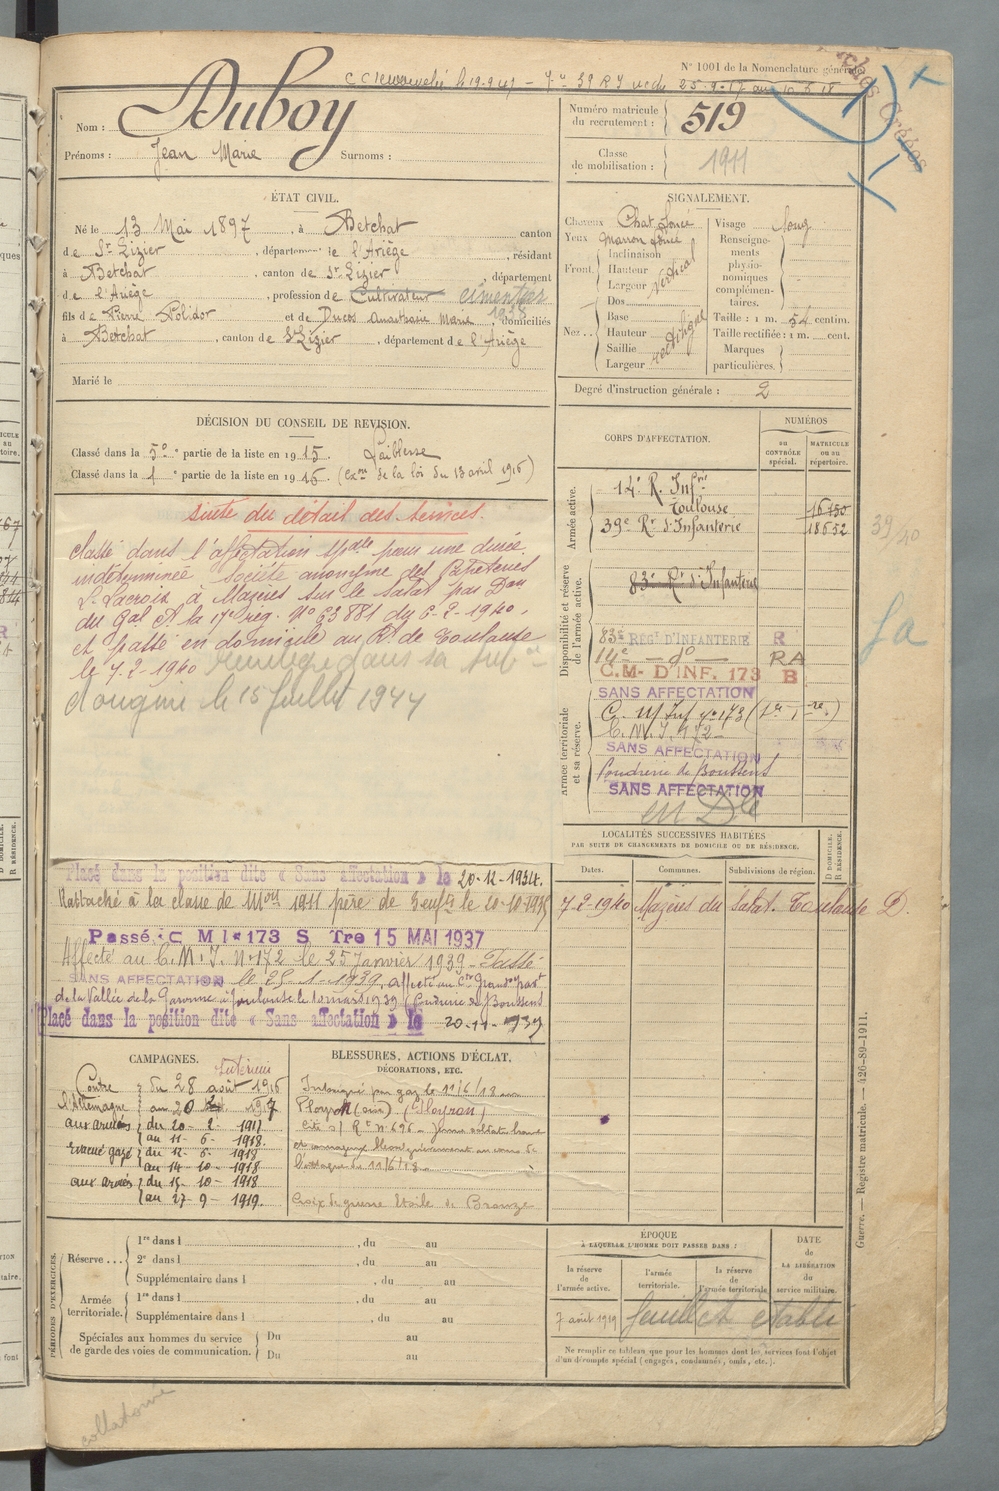 N° 1001 de la Nomenclature générale
Nom : Duboy
Prénoms : Jean Marie Surnoms :
Numéro matricule du recrutement : 519
Classe de mobilisation : 1911
ÉTAT CIVIL.
Né le 13 Mai 1897, à Betchat canton
de St Lizier, département de l'Ariège, résidant
à Betchat, canton de St Lizier, département
de l'Ariège, profession de Cultivateur cimentier
1938
fils de Pierre Polidor et de Ducos Anastasie Marie, domiciliés
à Betchat, canton de St Lizier, département de l'Ariège
Marié le
SIGNALEMENT.
Cheveux Chat. foncé
Yeux marron foncé
Front. Inclinaison
Hauteur vertical
Largeur
Nez. Dos
Base
Hauteur rectiligne
Saillie
Largeur
Visage long
Renseignements physionomiques complémentaires.
Taille : 1 m. 54 centim.
Taille rectifiée : 1 m. cent.
Marques particulières.
Degré d'instruction générale : 2
DÉCISION DU CONSEIL DE REVISION.
Classé dans la 5e partie de la liste en 1915. faiblesse
Classé dans la 1e partie de la liste en 1916. (Exon de la loi du 13 avril 1916)
suite du détail des services.
classé dans l'affectation spale pour une durée
indéterminée Société anonyme des Papeteries
L. Lacroix à Mazères sur le Salat par Don
du Gal Ct la 17e rég. N° 63881 du 6-2-1940.
et passé en domicile au R. de Toulouse
le 7-2-1940
d'origine le 15 juillet 1944
CORPS D'AFFECTATION.
NUMÉROS
au CONTRÔLE spécial.
MATRICULE ou au répertoire.
Armée active.
14e R. Infrie
Toulouse 16150
39e Rt d'Infanterie 18652
39/40
Disponibilité et réserve de l'armée active.
83e Rt d'Infanterie
83e RÉGt D'INFANTERIE R
14e — do — RA
C.M- D'INF. 173 B
SANS AFFECTATION
Armée territoriale et sa réserve.
C. M. I. 172
SANS AFFECTATION
fonderie de Boussens
SANS AFFECTATION
en Dle
LOCALITÉS SUCCESSIVES HABITÉES
PAR SUITE DE CHANGEMENTS DE DOMICILE OU DE RÉSIDENCE.
Dates. Communes. Subdivisions de région. D DOMICILE. R RÉSIDENCE.
7-2-1940 Mazères du Salat. Toulouse D.
Placé dans la position dite « Sans affectation » le 20-12-1934.
Rattaché à la classe de Mon 1911 père de 3 enfts le 20-10-1935
Passé : C M I * 173 S Tre 15 MAI 1937
Affecté au C.M.I. N° 172 le 25 Janvier 1939 - Passé
SANS AFFECTATION le 25-1-1939, affecté au Ctre
de la Vallée de la Garonne à Toulouse le 10 mars 1939 (Fonderie de Boussens
Placé dans la position dite « Sans affectation » le 20-11-1939
CAMPAGNES.
Intérieur
Contre l'Allemagne du 28 août 1916
au 20 1917
aux armées du 20-2-1917
au 11-6-1918.
Evacué gazé du 12-6-1918
au 14-10-1918
aux armées du 15-10-1918
au 27-9-1919.
BLESSURES, ACTIONS D'ÉCLAT,
DÉCORATIONS, ETC.
Intoxiqué par gaz le 11/6/18 au
Ployron (oise) (Ployron)
Cité s/ Rt n° 696 - Jeune soldat brave
et courageux
l'attaque du 11/6/18
Croix de guerre Etoile de Bronze
PÉRIODES D'EXERCICES.
Réserve... 1re dans l , du au
2e dans l , du au
Supplémentaire dans l , du au
Armée territoriale. 1re dans l , du au
Supplémentaire dans l , du au
Spéciales aux hommes du service de garde des voies de communication. Du au
Du au
ÉPOQUE
À LAQUELLE L'HOMME DOIT PASSER DANS :
la réserve de l'armée active. l'armée territoriale. la réserve de l'armée territoriale
DATE de LA LIBÉRATION du service militaire.
7 août 1919 feuillet établi
Ne remplir ce tableau que pour les hommes dont les services font l'objet
d'un décompte spécial (engagés, condamnés, omis, etc.).
Guerre. — Registre matricule. — 426-89-1911.